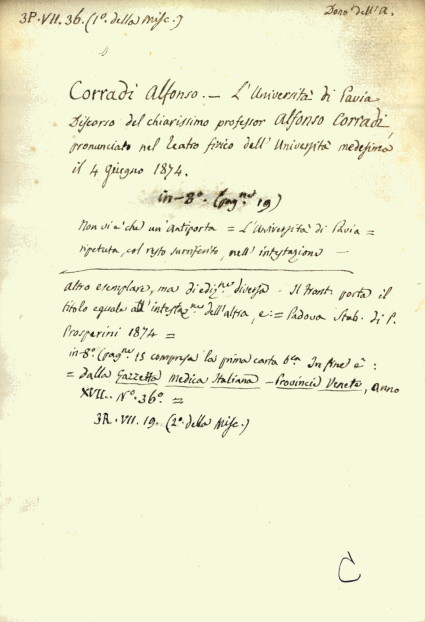 3P.VII.36.(1º. della Misc.)
Dono dell'A.
Corradi Alfonso. — L'Università di Pavia
Discorso del chiarissimo professor Alfonso Corradi,
pronunciato nel teatro fisico dell'Università medesima
il 4 giugno 1874.
in-8º. (pag.ne 19)
Non vi è che un'antiporta = L'Università di Pavia =
ripetuta, col resto surriferito, nell'intestazione —
Altro esemplare, ma di ediz.ne diversa - Il front. porta il
titolo eguale all'intestaz.ne dell'altra, e: = Padova Stab. di P.
Prosperini 1874 =
in-8º. (pag.ne 15 compresa la prima carta b.ca In fine è :
= Dalla Gazzetta Medica Italiana - Provincie Venete, anno
XVII. Nº. 36º. =
3R.VII.19. (2º. della Misc.)
C